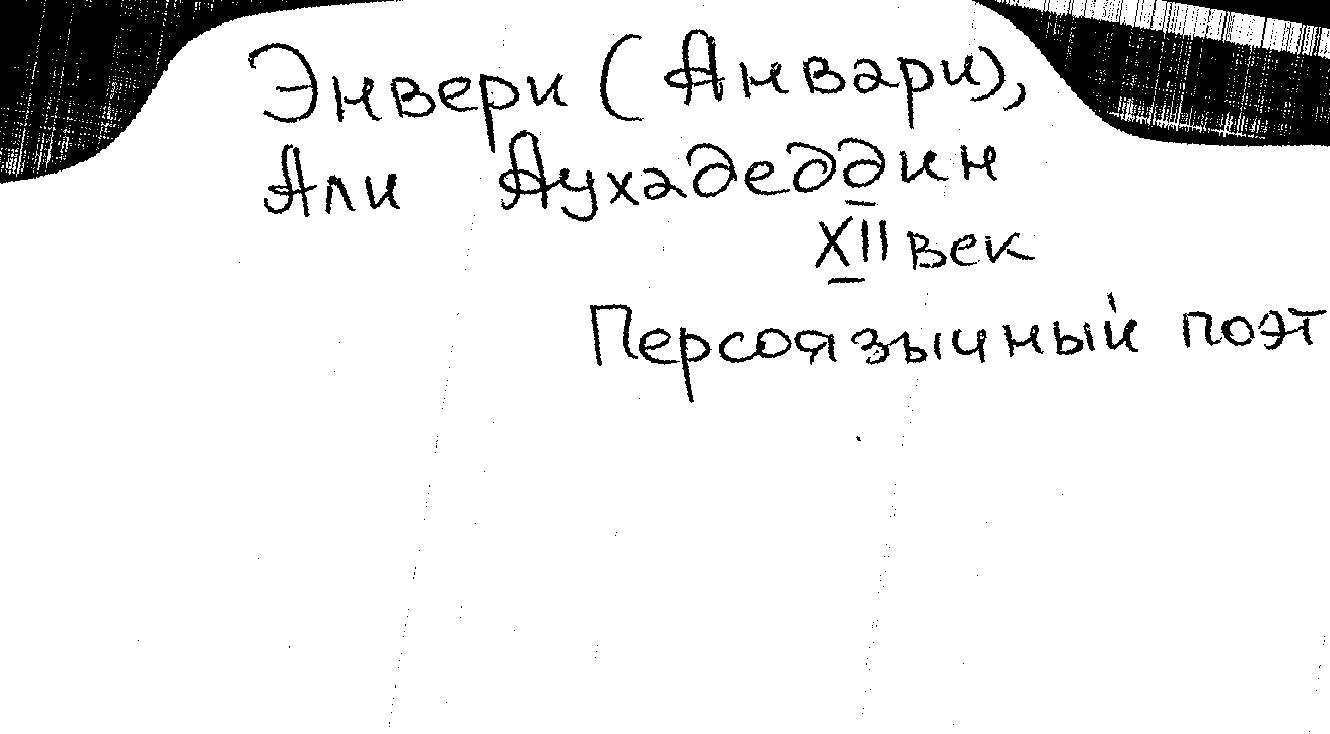 Энвери (Анвари),
Али Аухадеддин
XII век
Персоязычный поэт